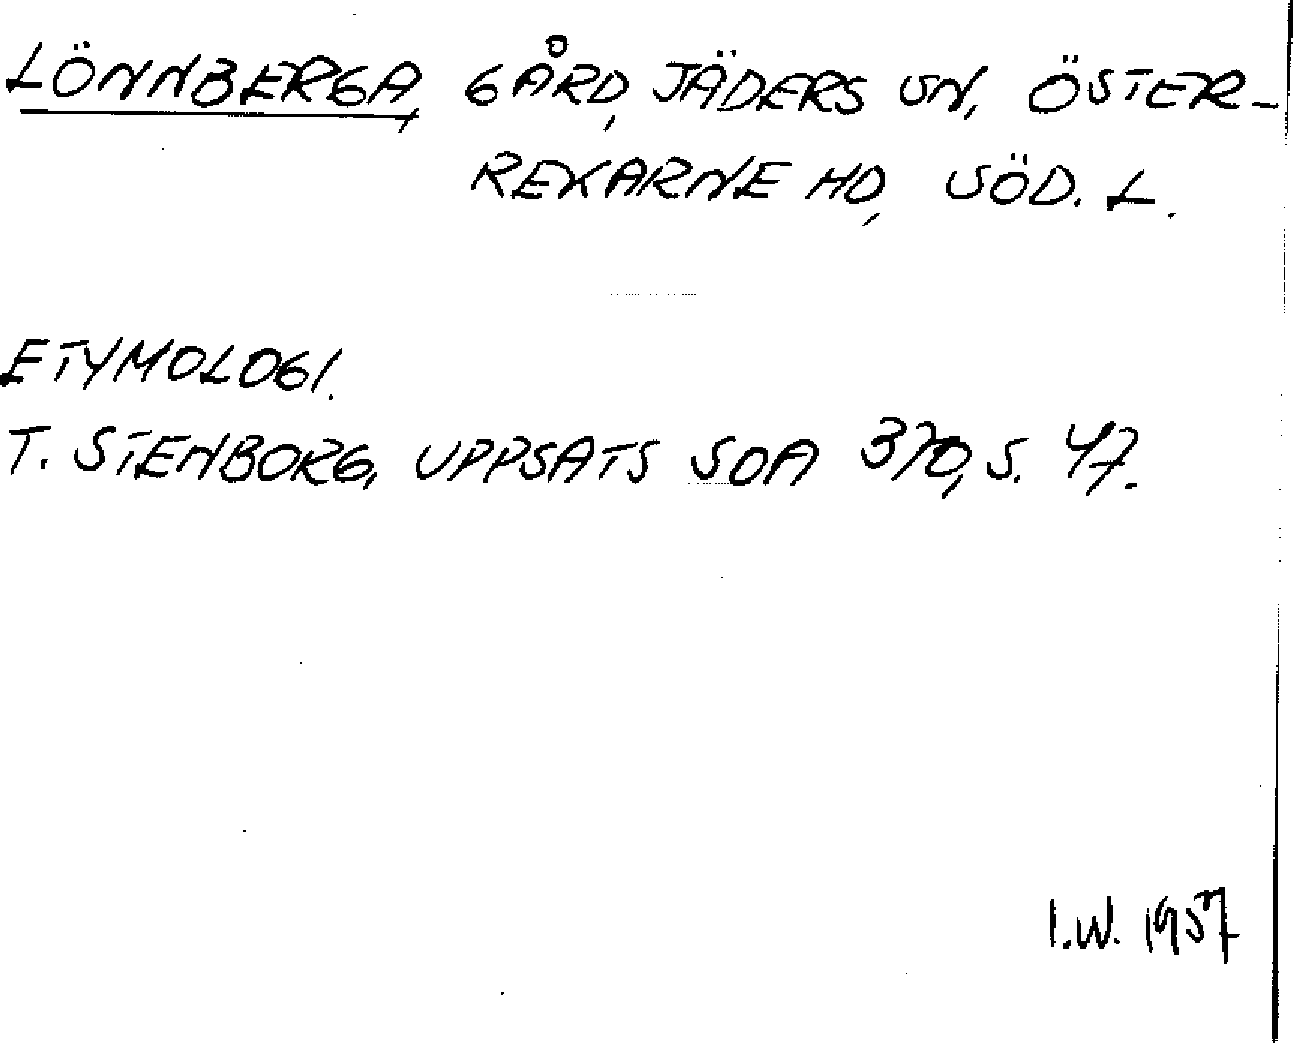 LÖNNBERGA, GÅRD, JÄDERS SN, ÖSTER-
REKARNE HD, SÖD. L.
ETYMOLOGI.
T. STENBORG, UPPSATS SOA 370, S. 47.
I.W. 1957